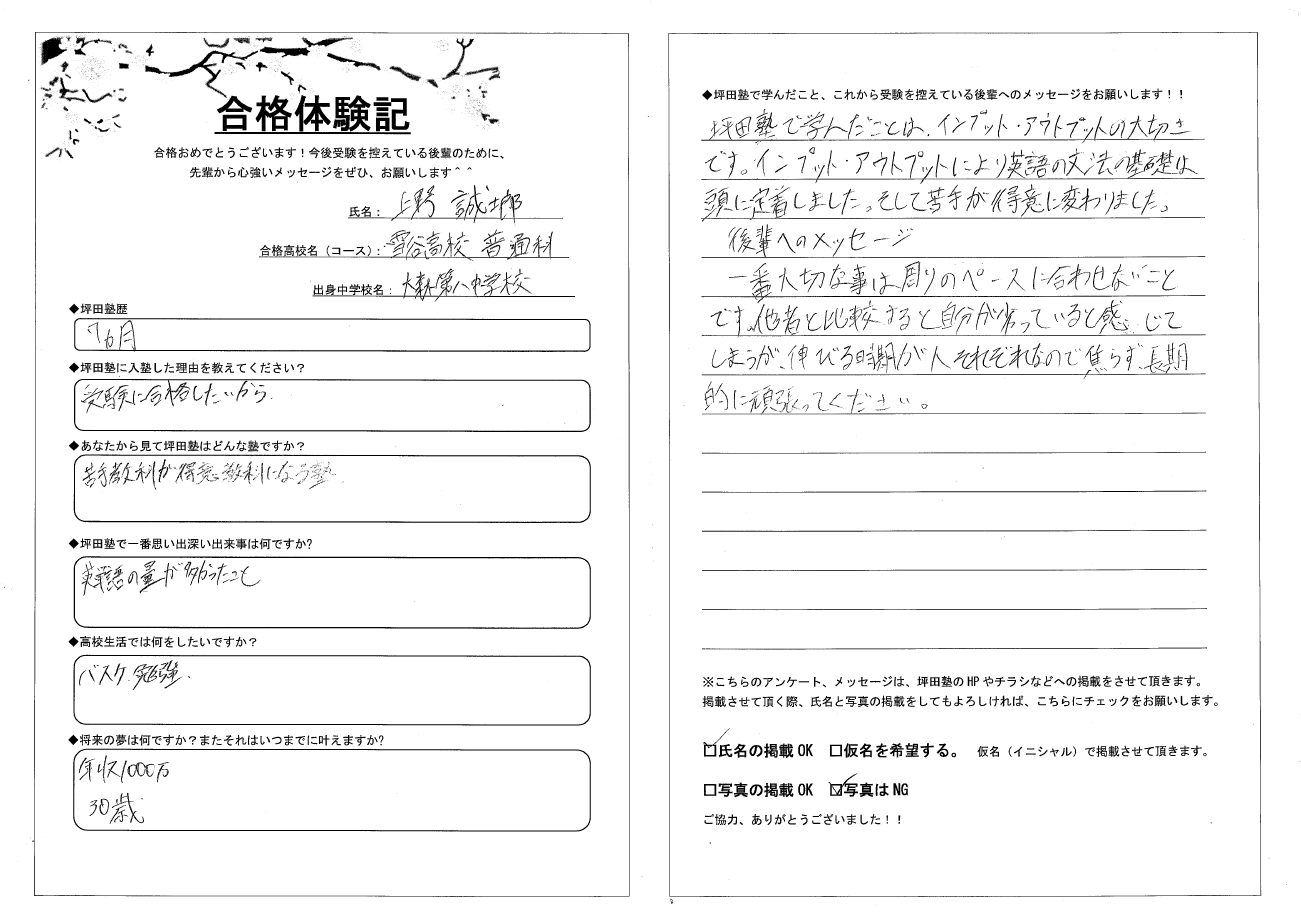 合格体験記
合格おめでとうございます！今後受験を控えている後輩のために、
先輩から心強いメッセージをぜひ、お願いします＾＾
氏名： 上野 誠士郎
合格高校名（コース）： 雪谷高校 普通科
出身中学校名： 大森第八中学校
◆坪田塾歴
7ヵ月
◆坪田塾に入塾した理由を教えてください？
受験に合格したいから
◆あなたから見て坪田塾はどんな塾ですか？
苦手教科が得意教科になる塾
◆坪田塾で一番思い出深い出来事は何ですか?
英単語の量が多かったこと
◆高校生活では何をしたいですか？
バスケ、勉強、
◆将来の夢は何ですか？またそれはいつまでに叶えますか?
年収1000万
30歳
◆坪田塾で学んだこと、これから受験を控えている後輩へのメッセージをお願いします！！
坪田塾で学んだことは、インプット・アウトプットの大切さ
です。インプット・アウトプットにより英語の文法の基礎は
頭に定着しました。そして苦手が得意に変わりました。
後輩へのメッセージ
一番大切な事は周りのペースに合わせないこと
です。他者と比較すると自分が劣っていると感じて
しまうが、伸びる時期が人それぞれなので焦らず、長期
的に頑張ってください。
※こちらのアンケート、メッセージは、坪田塾のHPやチラシなどへの掲載をさせて頂きます。
掲載させて頂く際、氏名と写真の掲載をしてもよろしければ、こちらにチェックをお願いします。
☑氏名の掲載OK □仮名を希望する。 仮名（イニシャル）で掲載させて頂きます。
□写真の掲載OK ☑写真はNG
ご協力、ありがとうございました！！